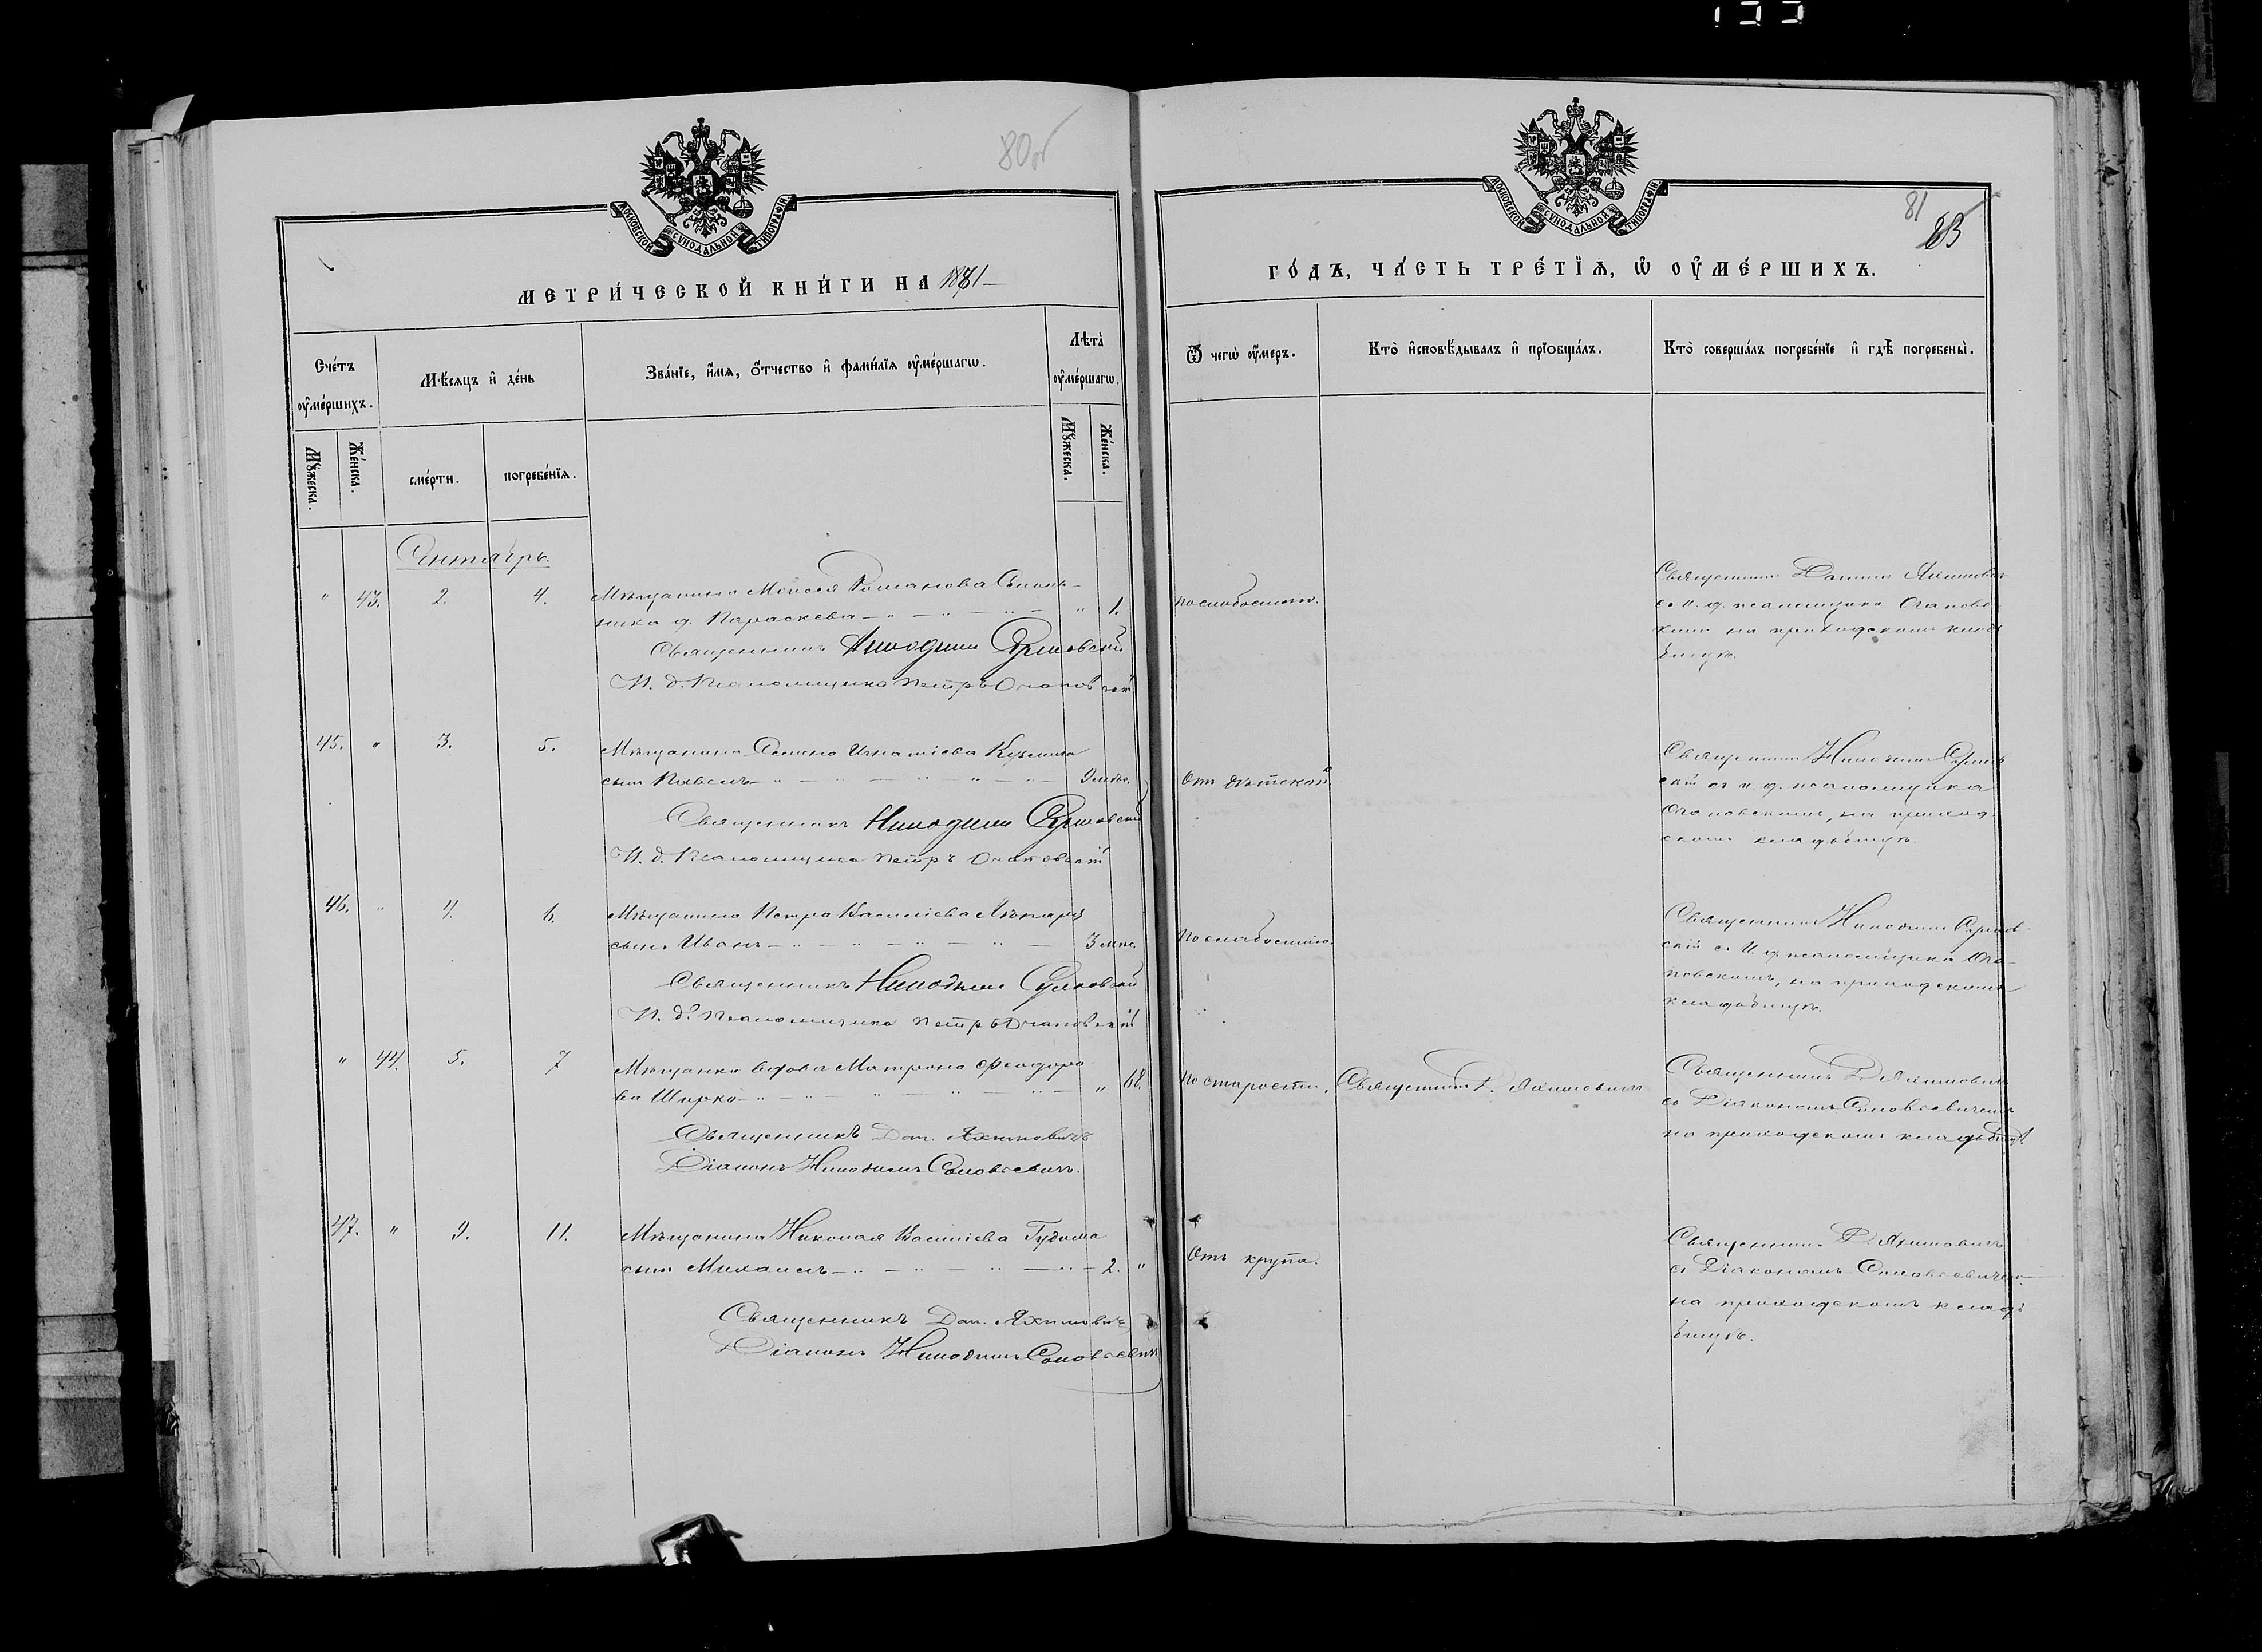 133
80об
МОСКОВСКОЙ СѴНОДАЛЬНОЙ ТИПОГРАФІИ
МЕТРИ́ЧЕСКОЙ КНИ́ГИ НА 1871
Сче́тъ оу҆ме́ршихъ.
Мѣ́сяцъ и҆ де́нь
Зва́нїе, и҆́мѧ, ѻ҆́тчество и҆ фами́лїѧ оу҆ме́ршагѡ.
Лѣта̀ оу҆ме́ршагѡ.
Мꙋ́жеска.
Же́нска.
сме́рти.
погребе́нїѧ.
Мꙋ́жеска.
Же́нска.
Сентябрь.
" 43. 2. 4. Мѣщанина Моисея Романова
д. Параскева " 1.
Священникъ Никодимъ
И. д. Псаломщика Петръ Очаповскій
45. " 3. 5. Мѣщанина Игнатіева
сынъ Павелъ
Священникъ Никодимъ
И. д. Псаломщика Петръ Очаповскій
46. " 4. 6. Мѣщанина Петра Василіева
сынъ Иванъ 3 мѣс.
Священникъ Никодимъ
И. д. Псаломщика Петръ Очаповскій
" 44. 5. 7 Мѣщанка вдова Матрона Феодоро
ва Шпрка " 68.
Священникъ Дан. Яхимовичъ
Діаконъ Никодимъ Соловьевичъ.
47. " 9. 11. Мѣщанина Николая Василіева Гудима
сынъ Михаилъ 2. "
Священникъ Дан. Яхимовичъ
Діаконъ Никодимъ Соловьевичъ
МОСКОВСКОЙ СѴНОДАЛЬНОЙ ТИПОГРАФІИ
81
83
ГО́ДЪ, ЧА́СТЬ ТРЕ́ТЇѦ, Ѡ҆ ОУ҆МЕ́РШИХЪ.
Ѿ чегѡ̀ оу҆́меръ.
Кто̀ и҆сповѣ́дывалъ и҆ прїѡбща́лъ.
Кто̀ соверша́лъ погребе́нїе и҆ гдѣ̀ погребены̀.
По слабости.
Священникъ Даніилъ Яхимовичъ
съ и. д. псаломщика Очаповс
кимъ на приходскомъ клад
бищѣ.
Отъ дѣтской
Священникъ Никодимъ
скій съ и. д. псаломщика
Очаповскимъ, на приход
скомъ кладбищѣ.
По слабости.
Священникъ Никодимъ
скій съ и. д. псаломщика Оча
повскимъ, на приходскомъ
кладбищѣ.
По старости.
Священникъ Д. Яхимовичъ
Священникъ Д. Яхимовичъ
съ Діакономъ Соловьевичемъ
на приходскомъ кладбищѣ.
Отъ крупа.
Священникъ Д. Яхимовичъ
съ Діакономъ Соловьевичемъ
на приходскомъ клад
бищѣ.